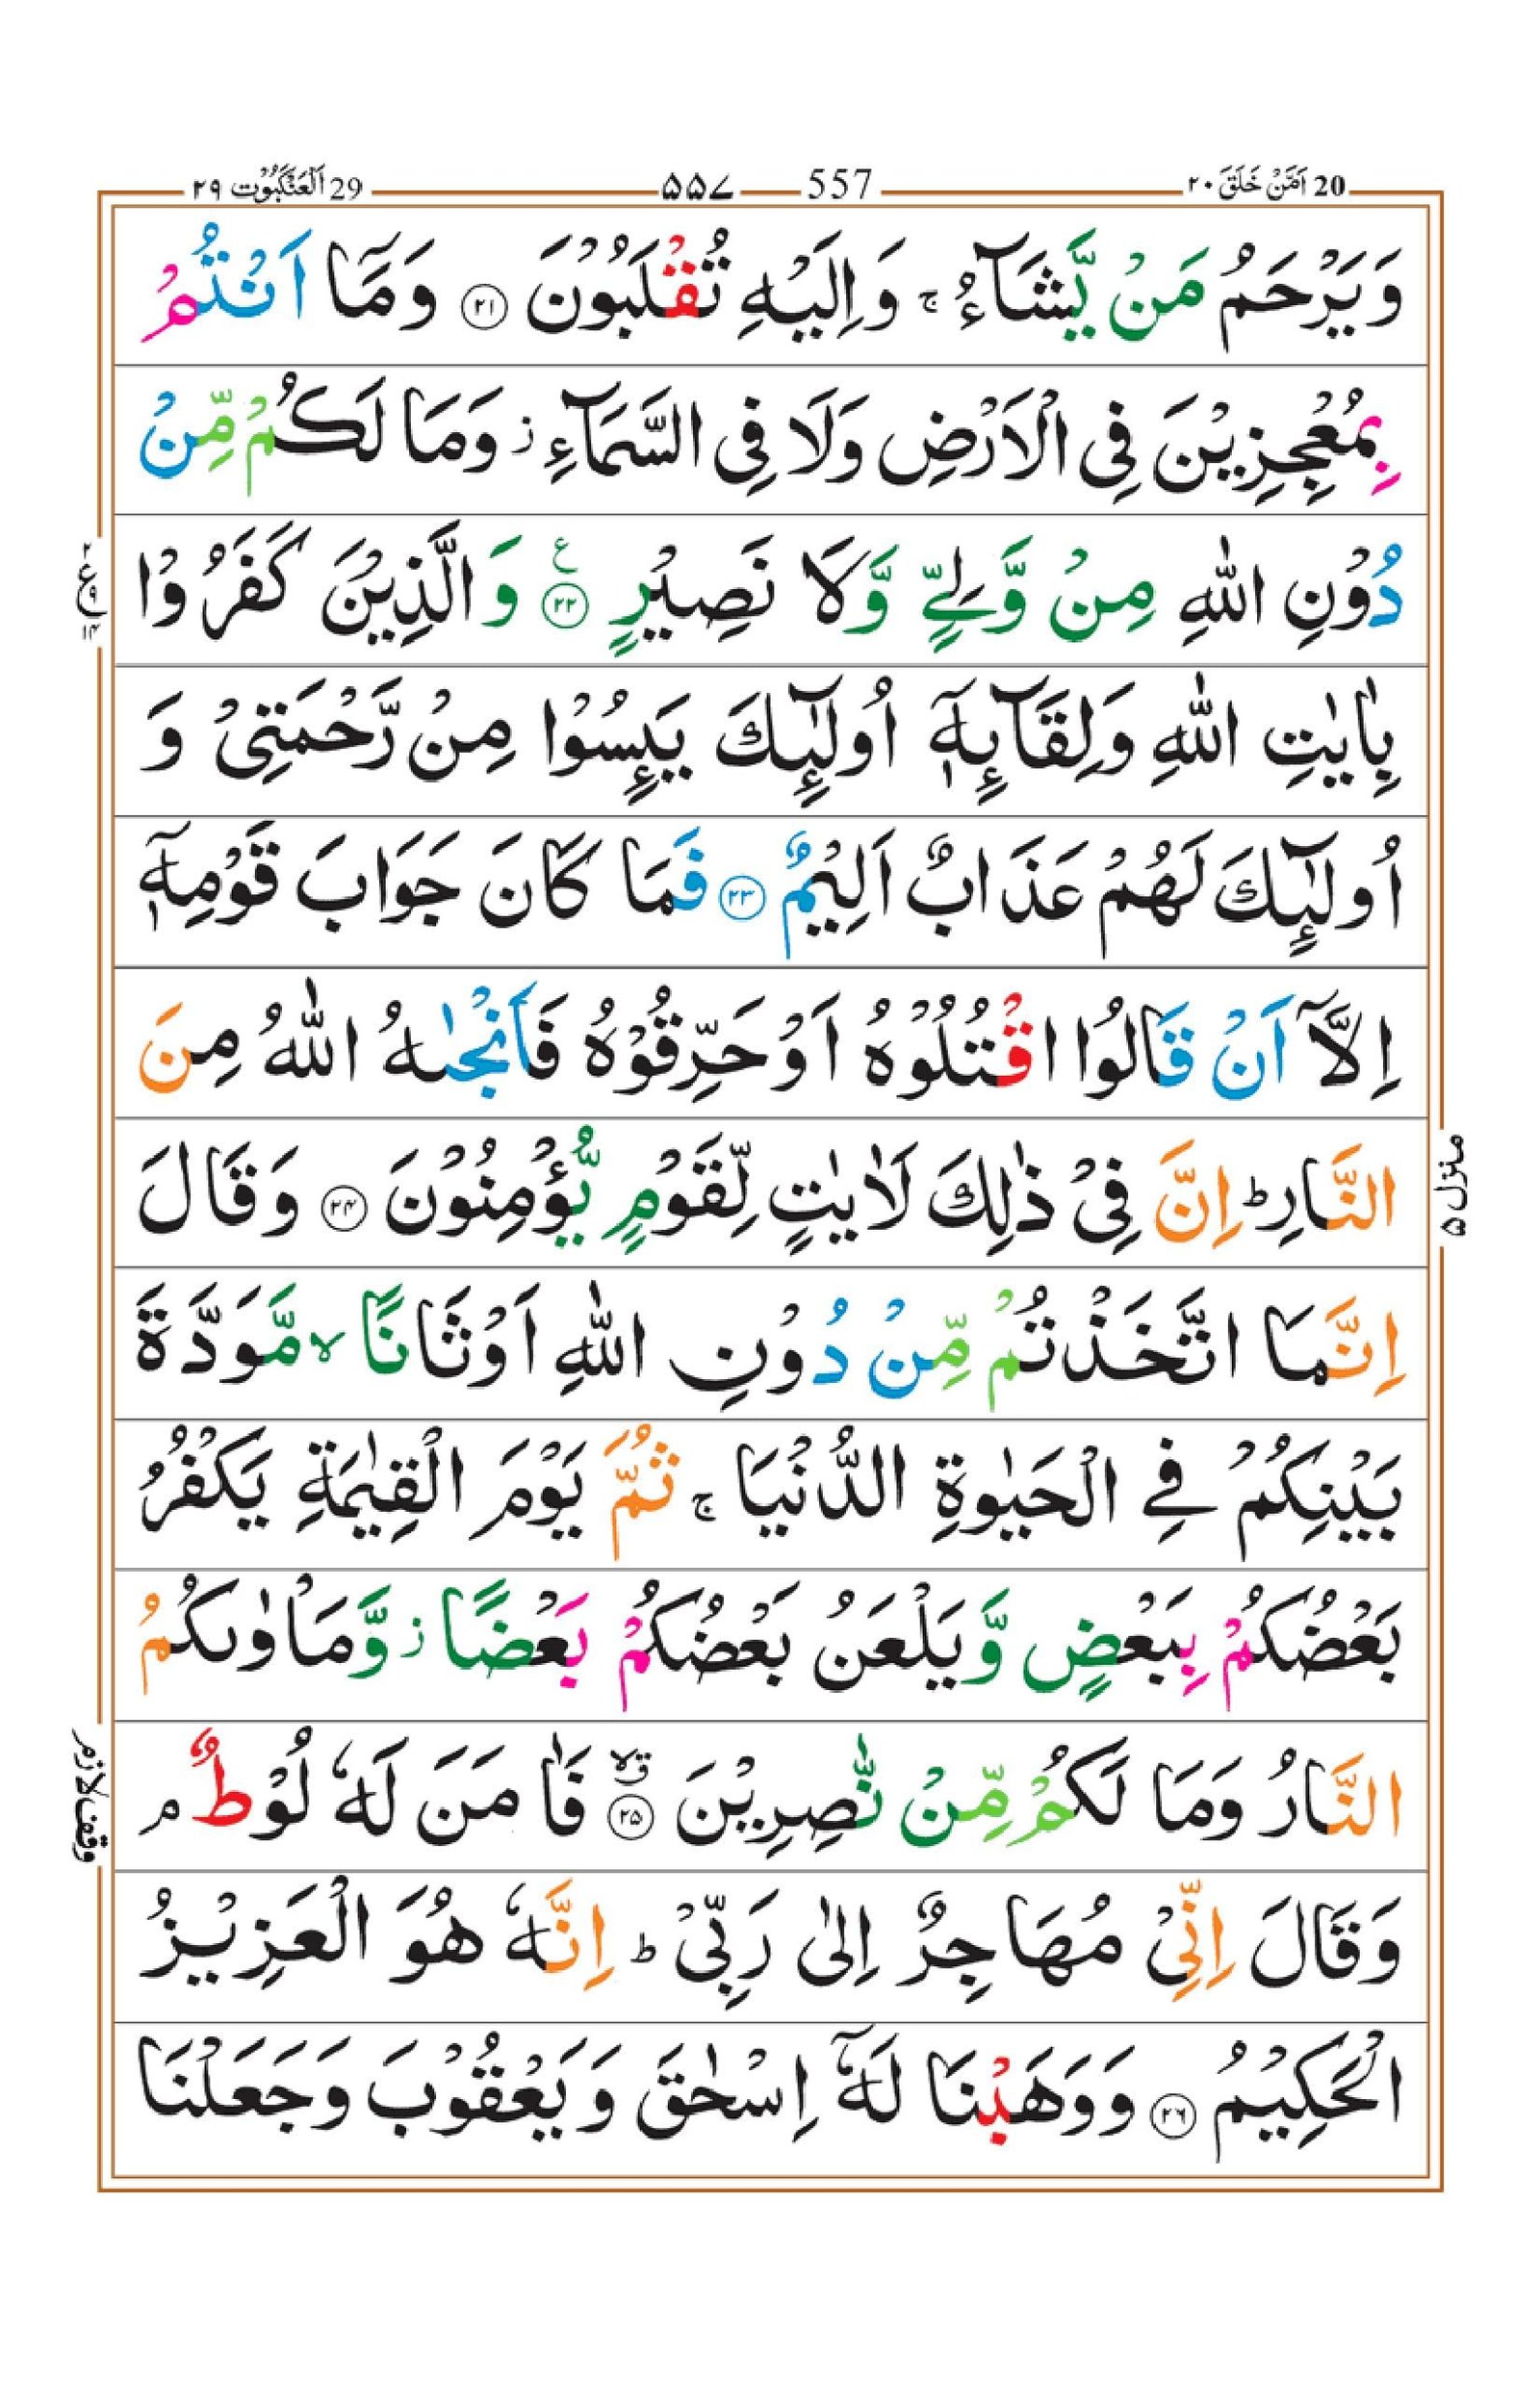 20 اَمَّنْ خَلَقَ ٢٠
557 ۵۵۷
29 اَلْعَنْكَبُوْت ٢٩
وَيَرْحَمُ مَنْ يَّشَآءُ ۚ وَاِلَيْهِ تُقْلَبُوْنَ ۝۲۱ وَمَآ اَنْتُمْ
بِمُعْجِزِيْنَ فِى الْاَرْضِ وَلَا فِى السَّمَآءِ ز وَمَا لَكُمْ مِّنْ
دُوْنِ اللّٰهِ مِنْ وَّلِىٍّ وَّلَا نَصِيْرٍ ۝۲۲ ع وَالَّذِيْنَ كَفَرُوْا
بِاٰيٰتِ اللّٰهِ وَلِقَآئِهٖٓ اُولٰٓئِكَ يَئِسُوْا مِنْ رَّحْمَتِىْ وَ
اُولٰٓئِكَ لَهُمْ عَذَابٌ اَلِيْمٌ ۝۲۳ فَمَا كَانَ جَوَابَ قَوْمِهٖٓ
اِلَّآ اَنْ قَالُوا اقْتُلُوْهُ اَوْ حَرِّقُوْهُ فَاَنْجٰىهُ اللّٰهُ مِنَ
النَّارِ ؕ اِنَّ فِىْ ذٰلِكَ لَاٰيٰتٍ لِّقَوْمٍ يُّؤْمِنُوْنَ ۝۲۴ وَقَالَ
اِنَّمَا اتَّخَذْتُمْ مِّنْ دُوْنِ اللّٰهِ اَوْثَانًا ۙ مَّوَدَّةَ
بَيْنِكُمْ فِى الْحَيٰوةِ الدُّنْيَا ۚ ثُمَّ يَوْمَ الْقِيٰمَةِ يَكْفُرُ
بَعْضُكُمْ بِبَعْضٍ وَّيَلْعَنُ بَعْضُكُمْ بَعْضًا ز وَّمَاْوٰىكُمُ
النَّارُ وَمَا لَكُمْ مِّنْ نّٰصِرِيْنَ ۝۲۵ ق لا فَاٰمَنَ لَهٗ لُوْطٌ ۘ
وَقَالَ اِنِّىْ مُهَاجِرٌ اِلٰى رَبِّىْ ؕ اِنَّهٗ هُوَ الْعَزِيْزُ
الْحَكِيْمُ ۝۲۶ وَوَهَبْنَا لَهٗٓ اِسْحٰقَ وَيَعْقُوْبَ وَجَعَلْنَا
منزل ۵
وقف لازم